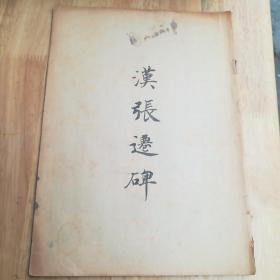 漢張遷碑